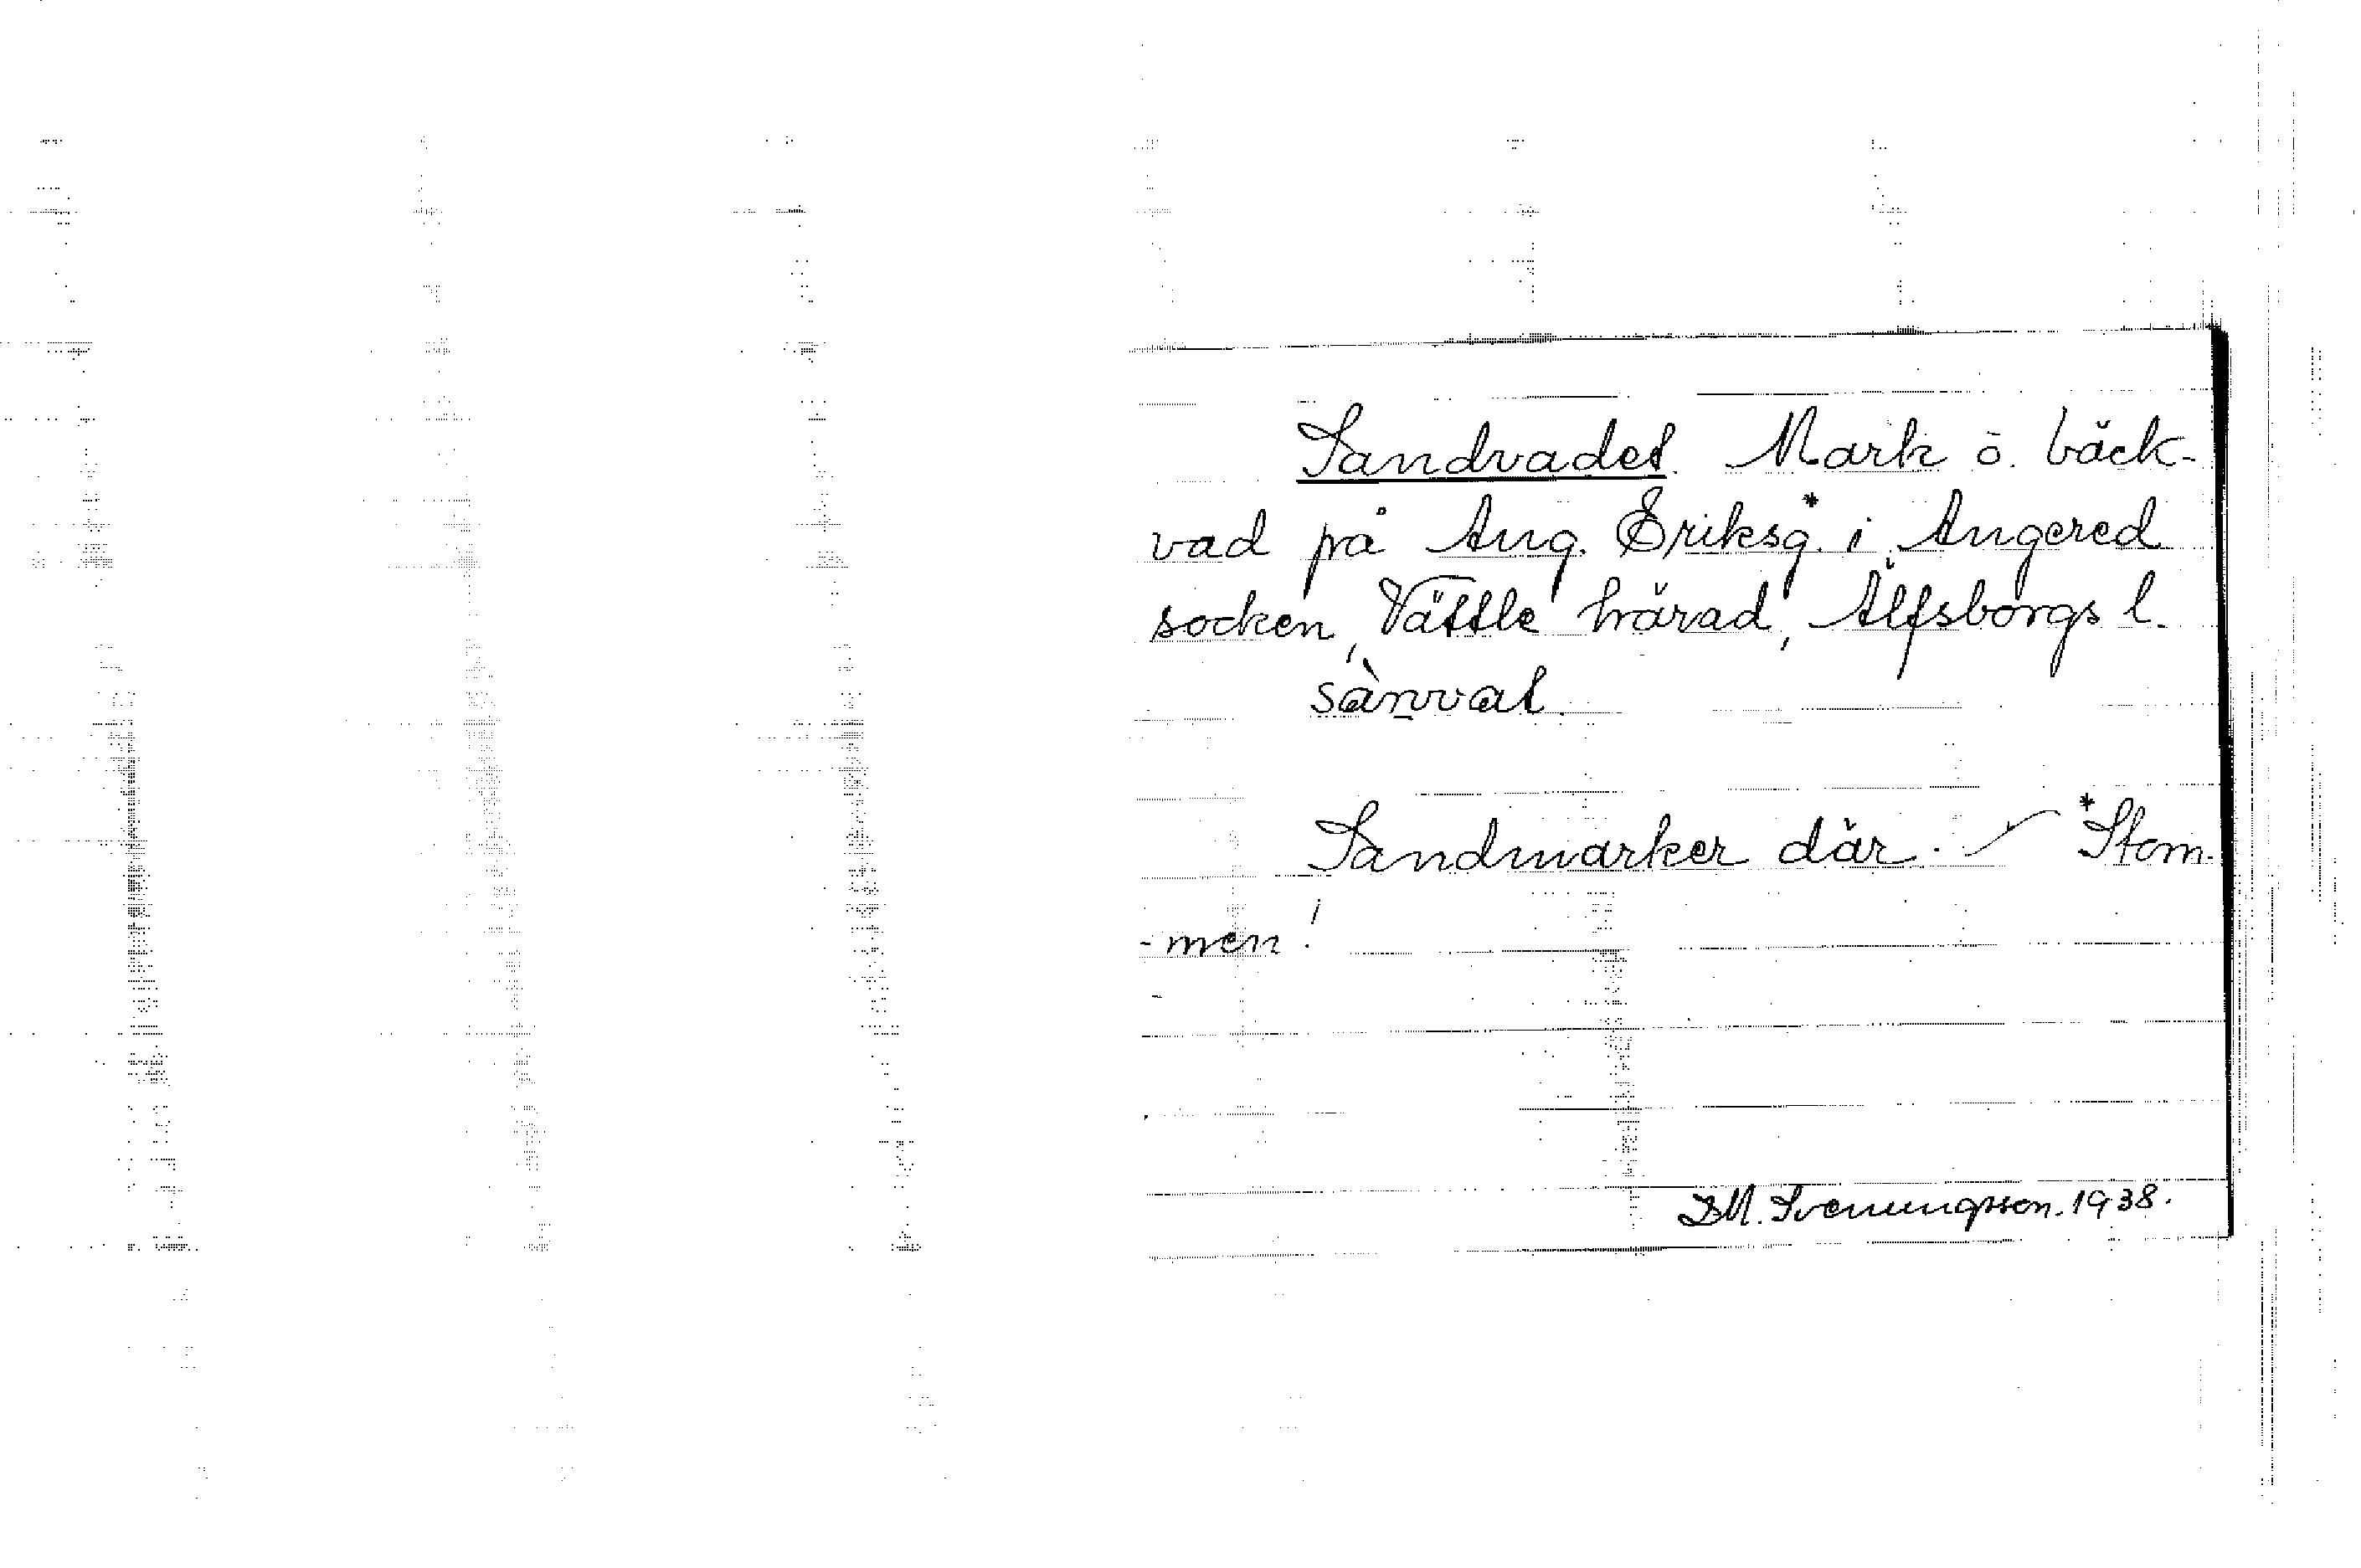 Sandvadet. Mark o. bäck-
vad på Aug. Eriksg.* i Angered
socken, Vättle härad, Älfsborgs l.
sànvat.
Sandmarker där. — *Stom-
-men!
I M. Svenungsson. 1938.